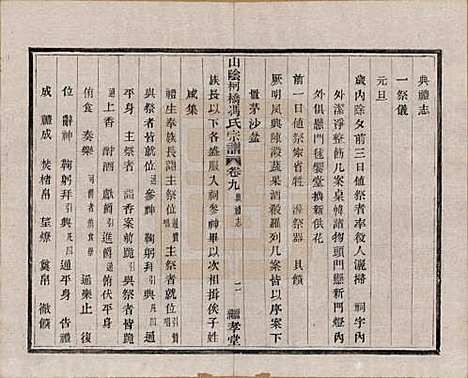 典禮志
一祭儀
元旦
歲內除夕前三日値祭者率役人灑掃 祠宇內
外潔淨整飭几案桌幃諸物頭門懸新門燈內
外俱懸門毬饗堂摘新供花
前一日値祭家省牲 滌祭器 具饌
厥明夙興陳設蔬果酒飯羅列几案皆以序案下
置茅沙盆
山陰柯橋馮氏宗譜 卷九 典禮志
二 繼孝堂
族長以下各盛服入祠參神畢以次相揖俟子姓
咸集
禮生奉族長詣主祭位通唱主祭者就位引贊
與祭者皆就位 參神 鞠躬拜引興凡四通
平身 主祭者 詣香案前跪引與祭者皆跪
通上香 酹酒 獻爵引進爵俯伏平身 通
侑食 奏樂 司爵者侑食 通樂止 復
位 辭神 鞠躬拜引興凡四通平身 告禮
成 禮成 焚楮帛 望燎 奠帛 徹饌